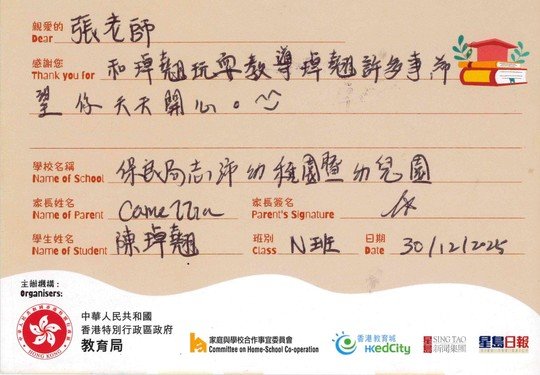 親愛的 張老師
Dear
感謝您 和瑋翹玩耍教導瑋翹許多事希
Thank you for
望你天天開心。
學校名稱 保良局志沛幼稚園暨幼兒園
Name of School
家長姓名 Camellia 家長簽名
Name of Parent Parent's Signature
學生姓名 陳瑋翹 班別 N班 日期 30/12/2025
Name of Student Class Date
主辦機構：
Organisers:
HONG KONG
中華人民共和國
香港特別行政區政府
教育局
家庭與學校合作事宜委員會
Committee on Home-School Co-operation
香港教育城
HKedCity
SING TAO
新聞集團
星島日報